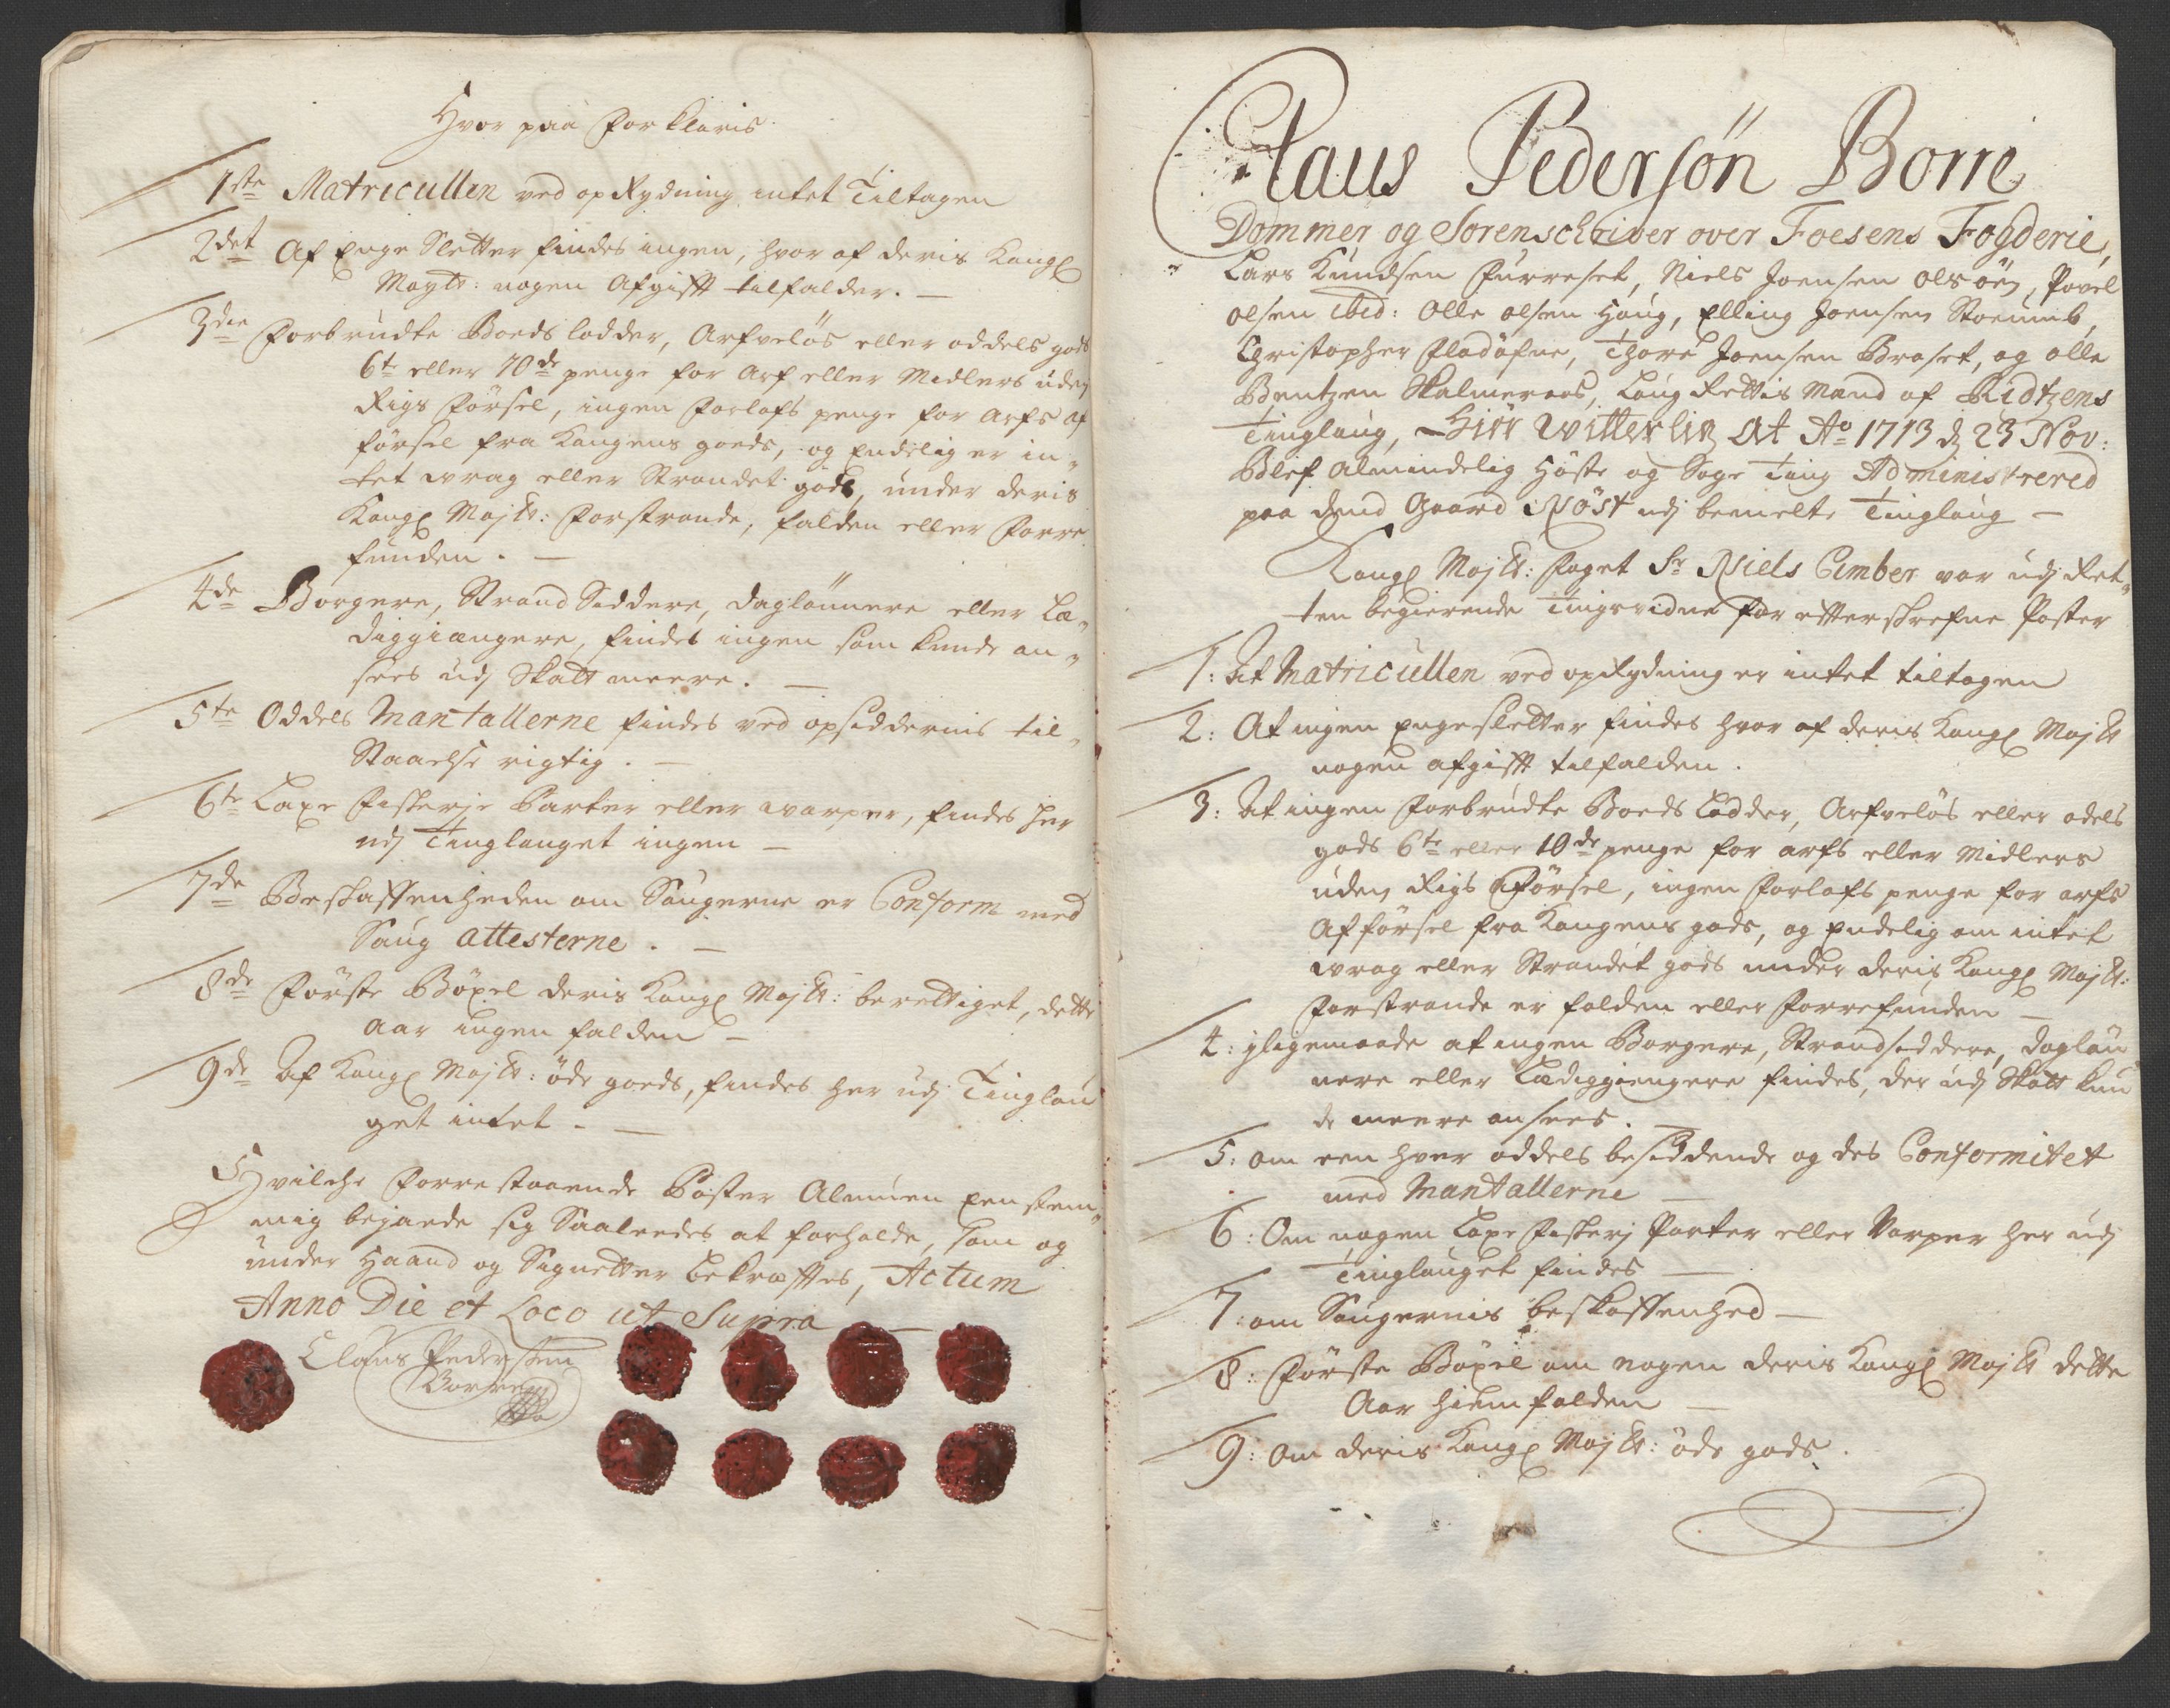 Hvor paa Forklaris
1ste Matricullen ved opRydning intet Tiltagen
2det Af Enge Sletter findes ingen, hvor af deris Kongl
Maytt: nogen Afgifft tilfalder. —
3die Forbrudte Boeds lodder, Arfveløs eller oddels gods
6te eller 10de penge for Arf eller Midlers uden
Rigs Førsel, ingen Forlofs penge for Arfs af
førsel fra Kongens goeds, og Endelig er in„
tet wrag eller Strandet gods, under deris
Kongl Maytt: Forstrande, falden eller Forre
funden. —
4de Borgere, Strand Siddere, daglønnere eller Læ„
diggiængere, findes ingen som kunde an„
sees udj Skatt meere. —
5te Oddels Mantallerne findes ved opsiddernis til„
Staaelse rigtig. —
6te Laxe Fiskerje Parter eller warper, findes her
udj Tinglauget ingen —
7de Beskaffenheden om Saugerne er Conform med
Saug attesterne. —
8de Første Bøxel deris Kongl Maytt: berettiget, dette
Aar ingen falden —
9de Af Kongl Maytt: øde goeds, findes her udj Tinglau
get intet. —
Hvilche Forrestaaende Poster Almuen Eenstem„
mig bejaede sig Saaleedes at forholde, som og
under Haand og Signetter bekræfftes, Actum
Anno Die et Loco ut Supra —
Claus Pedersøn
Borre
Claus Pedersøn Borre
Dommer og Sorenschriver over Foesens Fogderie,
Lars Knudsen Furreset, Niels Joensen Olsøen, Povel
olsen ibid: Olle olsen Houg, Elling Joensen
Christopher Fladøfne, Thore Joensen Braset, og olle
Bentzen Skalmeraas, Laug Rettis Mænd af Ridtzens
Tinglaug, Giør Witterlig At Ao 1713 d 23 Nov:
Blef Almindelig Høste og Sage Ting Administrered
paa dend Gaard Røst udj bemelte Tinglaug —
Kongl Maytt: Foget Sr Niels Cimber var udj Ret„
ten begierende Tingsvidne for effterskrefne Poster
1: At Matricullen ved opRydning er intet tiltagen
2: At ingen Engesletter findes hvor af deris Kongl Maytt
nogen afgifft tilfalden.
3: At ingen Forbrudte Boeds Lodder, Arfveløs eller odels
gods 6te eller 10de penge for arfs eller Midlers
uden Rigs Førsel, ingen Forlofs penge for arfs
Afførsel fra Kongens gods, og Endelig om intet
wrag eller Strandet gods under deris Kongl Maytt:
Forstrande er falden eller Forrefunden —
4: jligemaade at ingen Borgere, Strandsiddere, dagløn
nere eller Lædiggiengere findes, der udj Skatt kun
de meere ansees. —
5: om een hver oddels besiddende og des Conformitet
med Mantallerne —
6: Om nogen Laxe Fiskerj Parter eller Varper her udj
Tinglauget findes —
7: om Saugernis beskaffenhed —
8: Første Bøxel om nogen deris Kongl Maytt dette
Aar hiemfalden —
9: Om deris Kongl Maytt: øde gods.